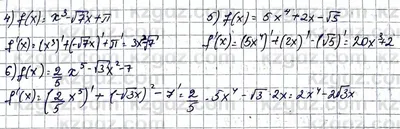 4) f(x) = x³ - √7x + π
f'(x) = (x³)' + (-√7x)' + π' = 3x² - √7
5) f(x) = 5x⁴ + 2x - √5
f'(x) = (5x⁴)' + (2x)' - (√5)' = 20x³ + 2
6) f(x) = 2/5 x⁵ - √3x² - 7
f'(x) = (2/5 x⁵)' + (-√3x)² - 7' = 2/5 · 5x⁴ - √3 · 2x = 2x⁴ - 2√3x